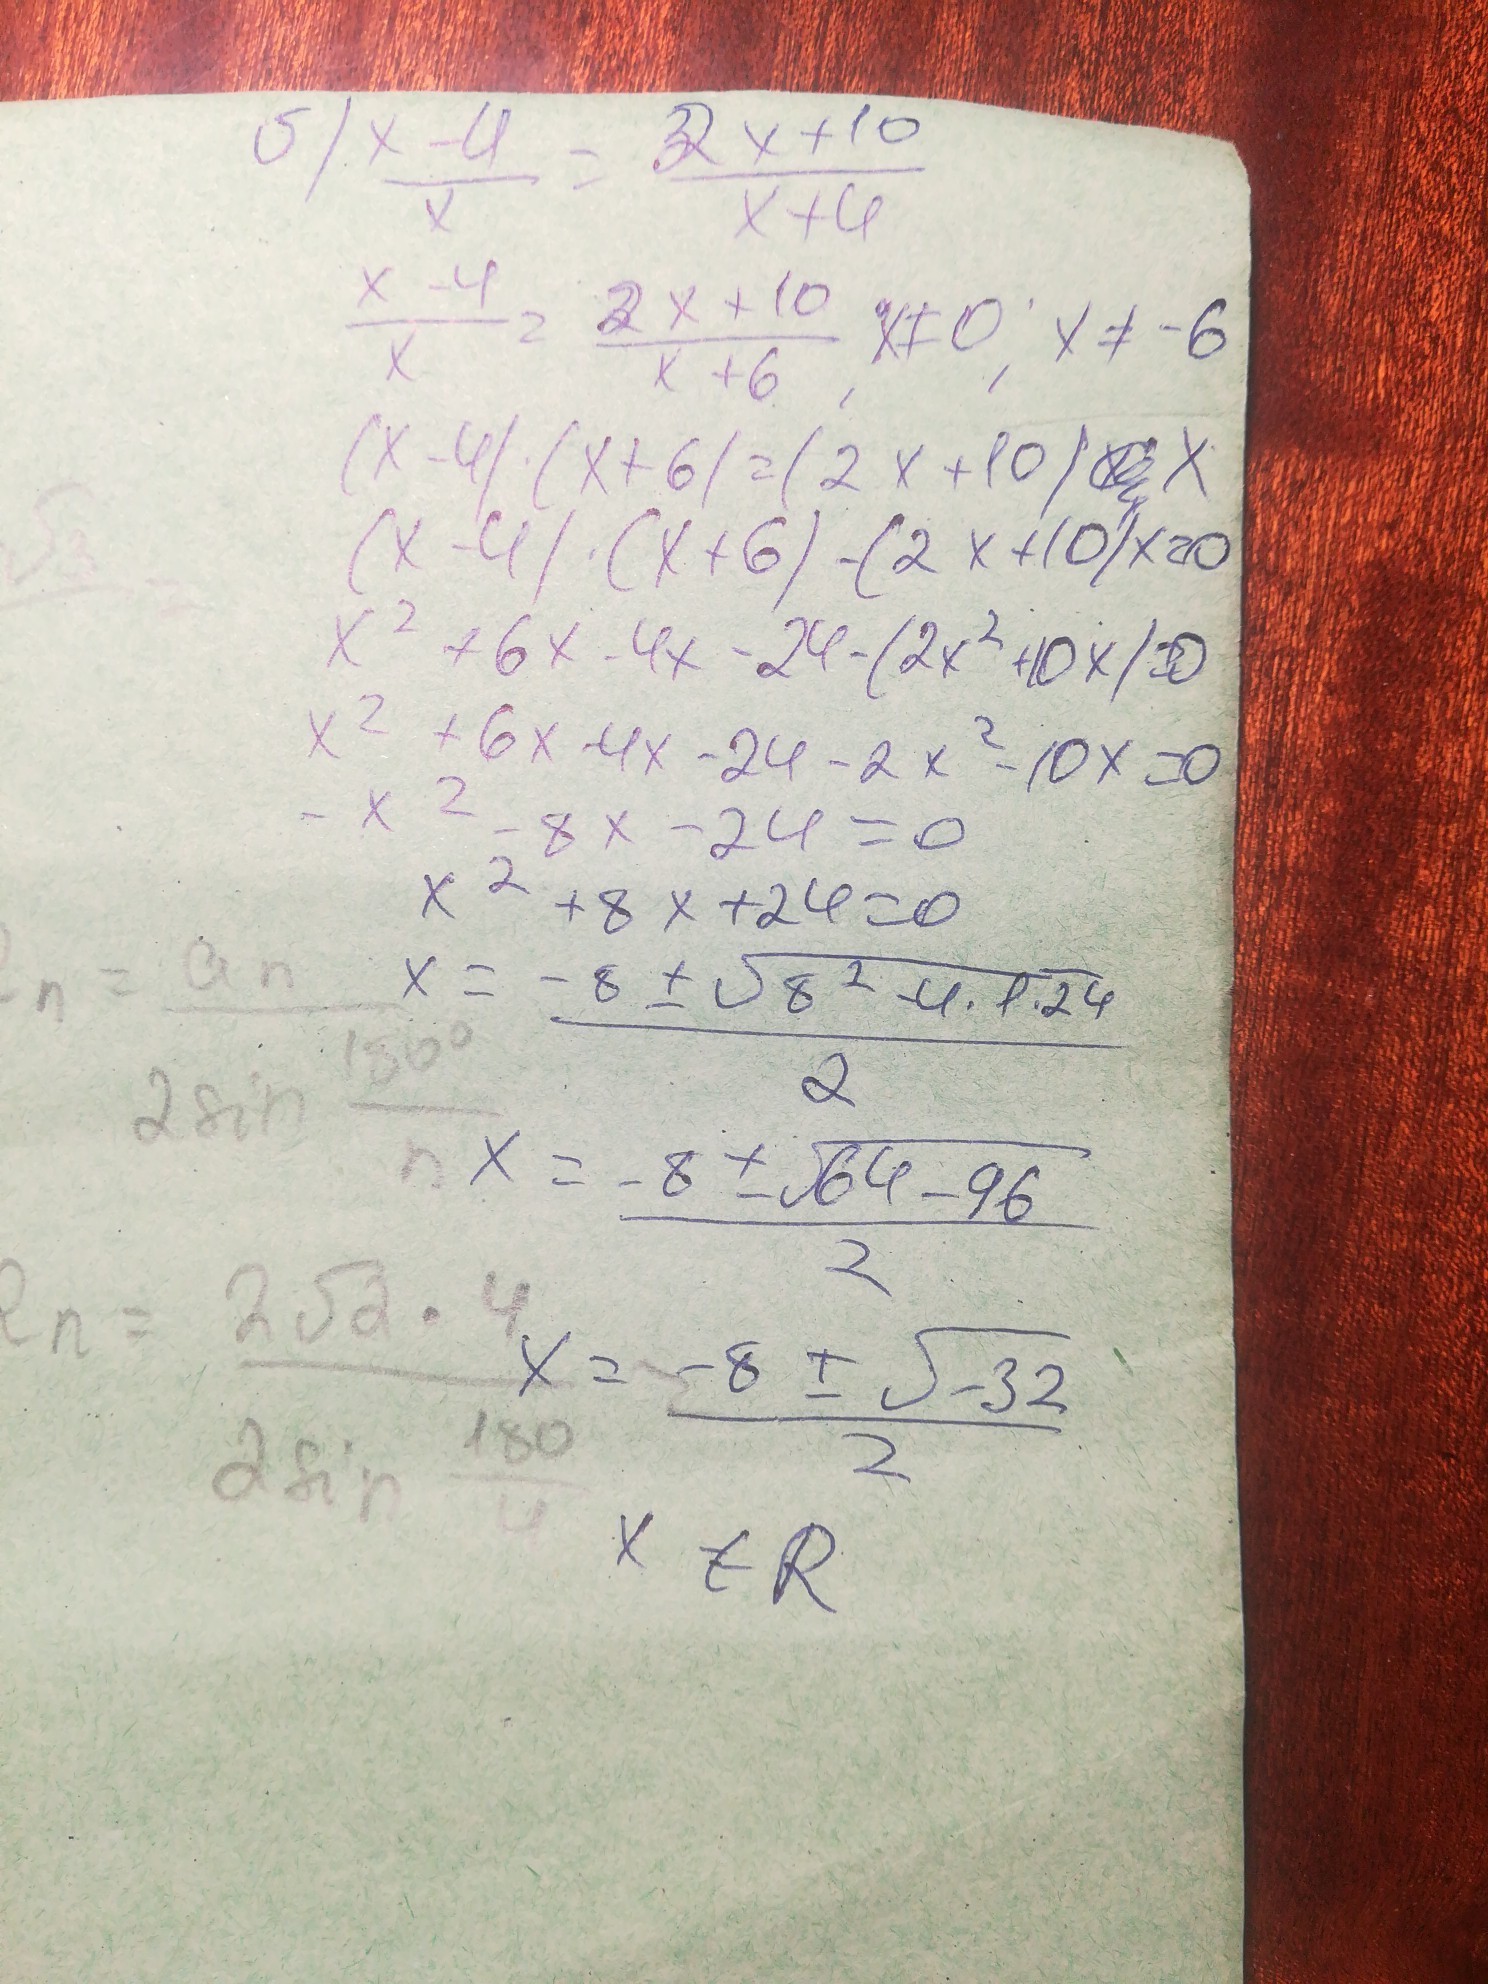 5) x-4/x = 2x+10/x+4
x-4/x = 2x+10/x+6, x≠0; x≠-6
(x-4)·(x+6)=(2x+10)x
(x-4)·(x+6)-(2x+10)x=0
x²+6x-4x-24-(2x²+10x)=0
x²+6x-4x-24-2x²-10x=0
-x²-8x-24=0
x²+8x+24=0
x = -8±√8²-4·1·24/2
x = -8±√64-96/2
x = -8±√-32/2
x ∉ R
Rn = an/2sin 180°/n
Rn = 2√2·4/2sin 180/4